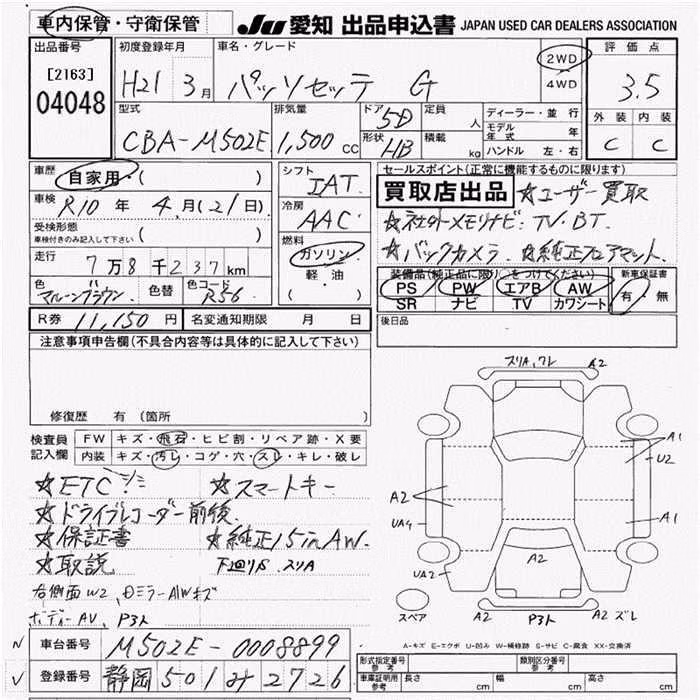 車内保管・守衛保管 JU 愛知 出品申込書 JAPAN USED CAR DEALERS ASSOCIATION
出品番号 初度登録年月 車名・グレード 2WD 4WD 評価点
[2163] H21 3月 パッソセッテ G 3.5
04048 型式 排気量 ドア 5D 定員 人 ディーラー・並行 外装 内装
CBA-M502E 1,500cc 形状 HB 積載 kg モデル年式 年 C C
ハンドル 左・右
車歴 自家用・( ) シフト IAT セールスポイント(正常に機能するものに限ります)
車検 R10年 4月(21日) 冷房 AAC 買取店出品 ☆ユーザー買取
受検形態 車検付きのみ記入して下さい ( ) ☆社外メモリナビ・TV・BT.
走行 7万8千237km 燃料 ガソリン 軽油 ( ・ ) ☆バックカメラ ☆純正フロアマット.
色 マルーンブラウン 色替 色コード R56 装備品(純正品に限り○をつけてください) 新車保証書
PS PW エアB AW 有・無
SR ナビ TV カワシート
R券 11,150円 名変通知期限 月 日 後日品
注意事項申告欄(不具合内容等は具体的に記入して下さい)
修復歴 有(箇所
検査員記入欄 FW キズ・飛石・ヒビ割・リペア跡・X要
内装 キズ・汚レ・コゲ・穴・スレ・キレ・破レ
☆ETC シミ ☆スマートキー
☆ドライブレコーダー前後
☆保証書 ☆純正15inAW.
☆取説 下回りS スリA
右側面W2,
ボディーAV, P3ト
スリA, ワレ A2
A1
U2
A2
UA4
A1
UA2
A2
スペア P3ト A2 ズレ
車台番号 M502E-0008899
登録番号 静岡 501 み 2726
A-キズ E-エクボ U-凹み W-補修跡 S-サビ C-腐食 XX-交換済
形式指定番号 参考 類別区分番号 参考
車庫証明用 参考 長さ cm 幅 cm 高さ cm